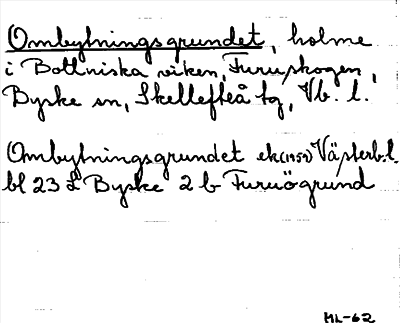 Ombytningsgrundet, holme
i Bottniska viken, Furuskogen,
Byske sn, Skellefteå tg, Vb. l.
Ombytningsgrundet ek(1959) Västerb.l.
bl 23 L Byske 2 b Furuögrund
ML-62